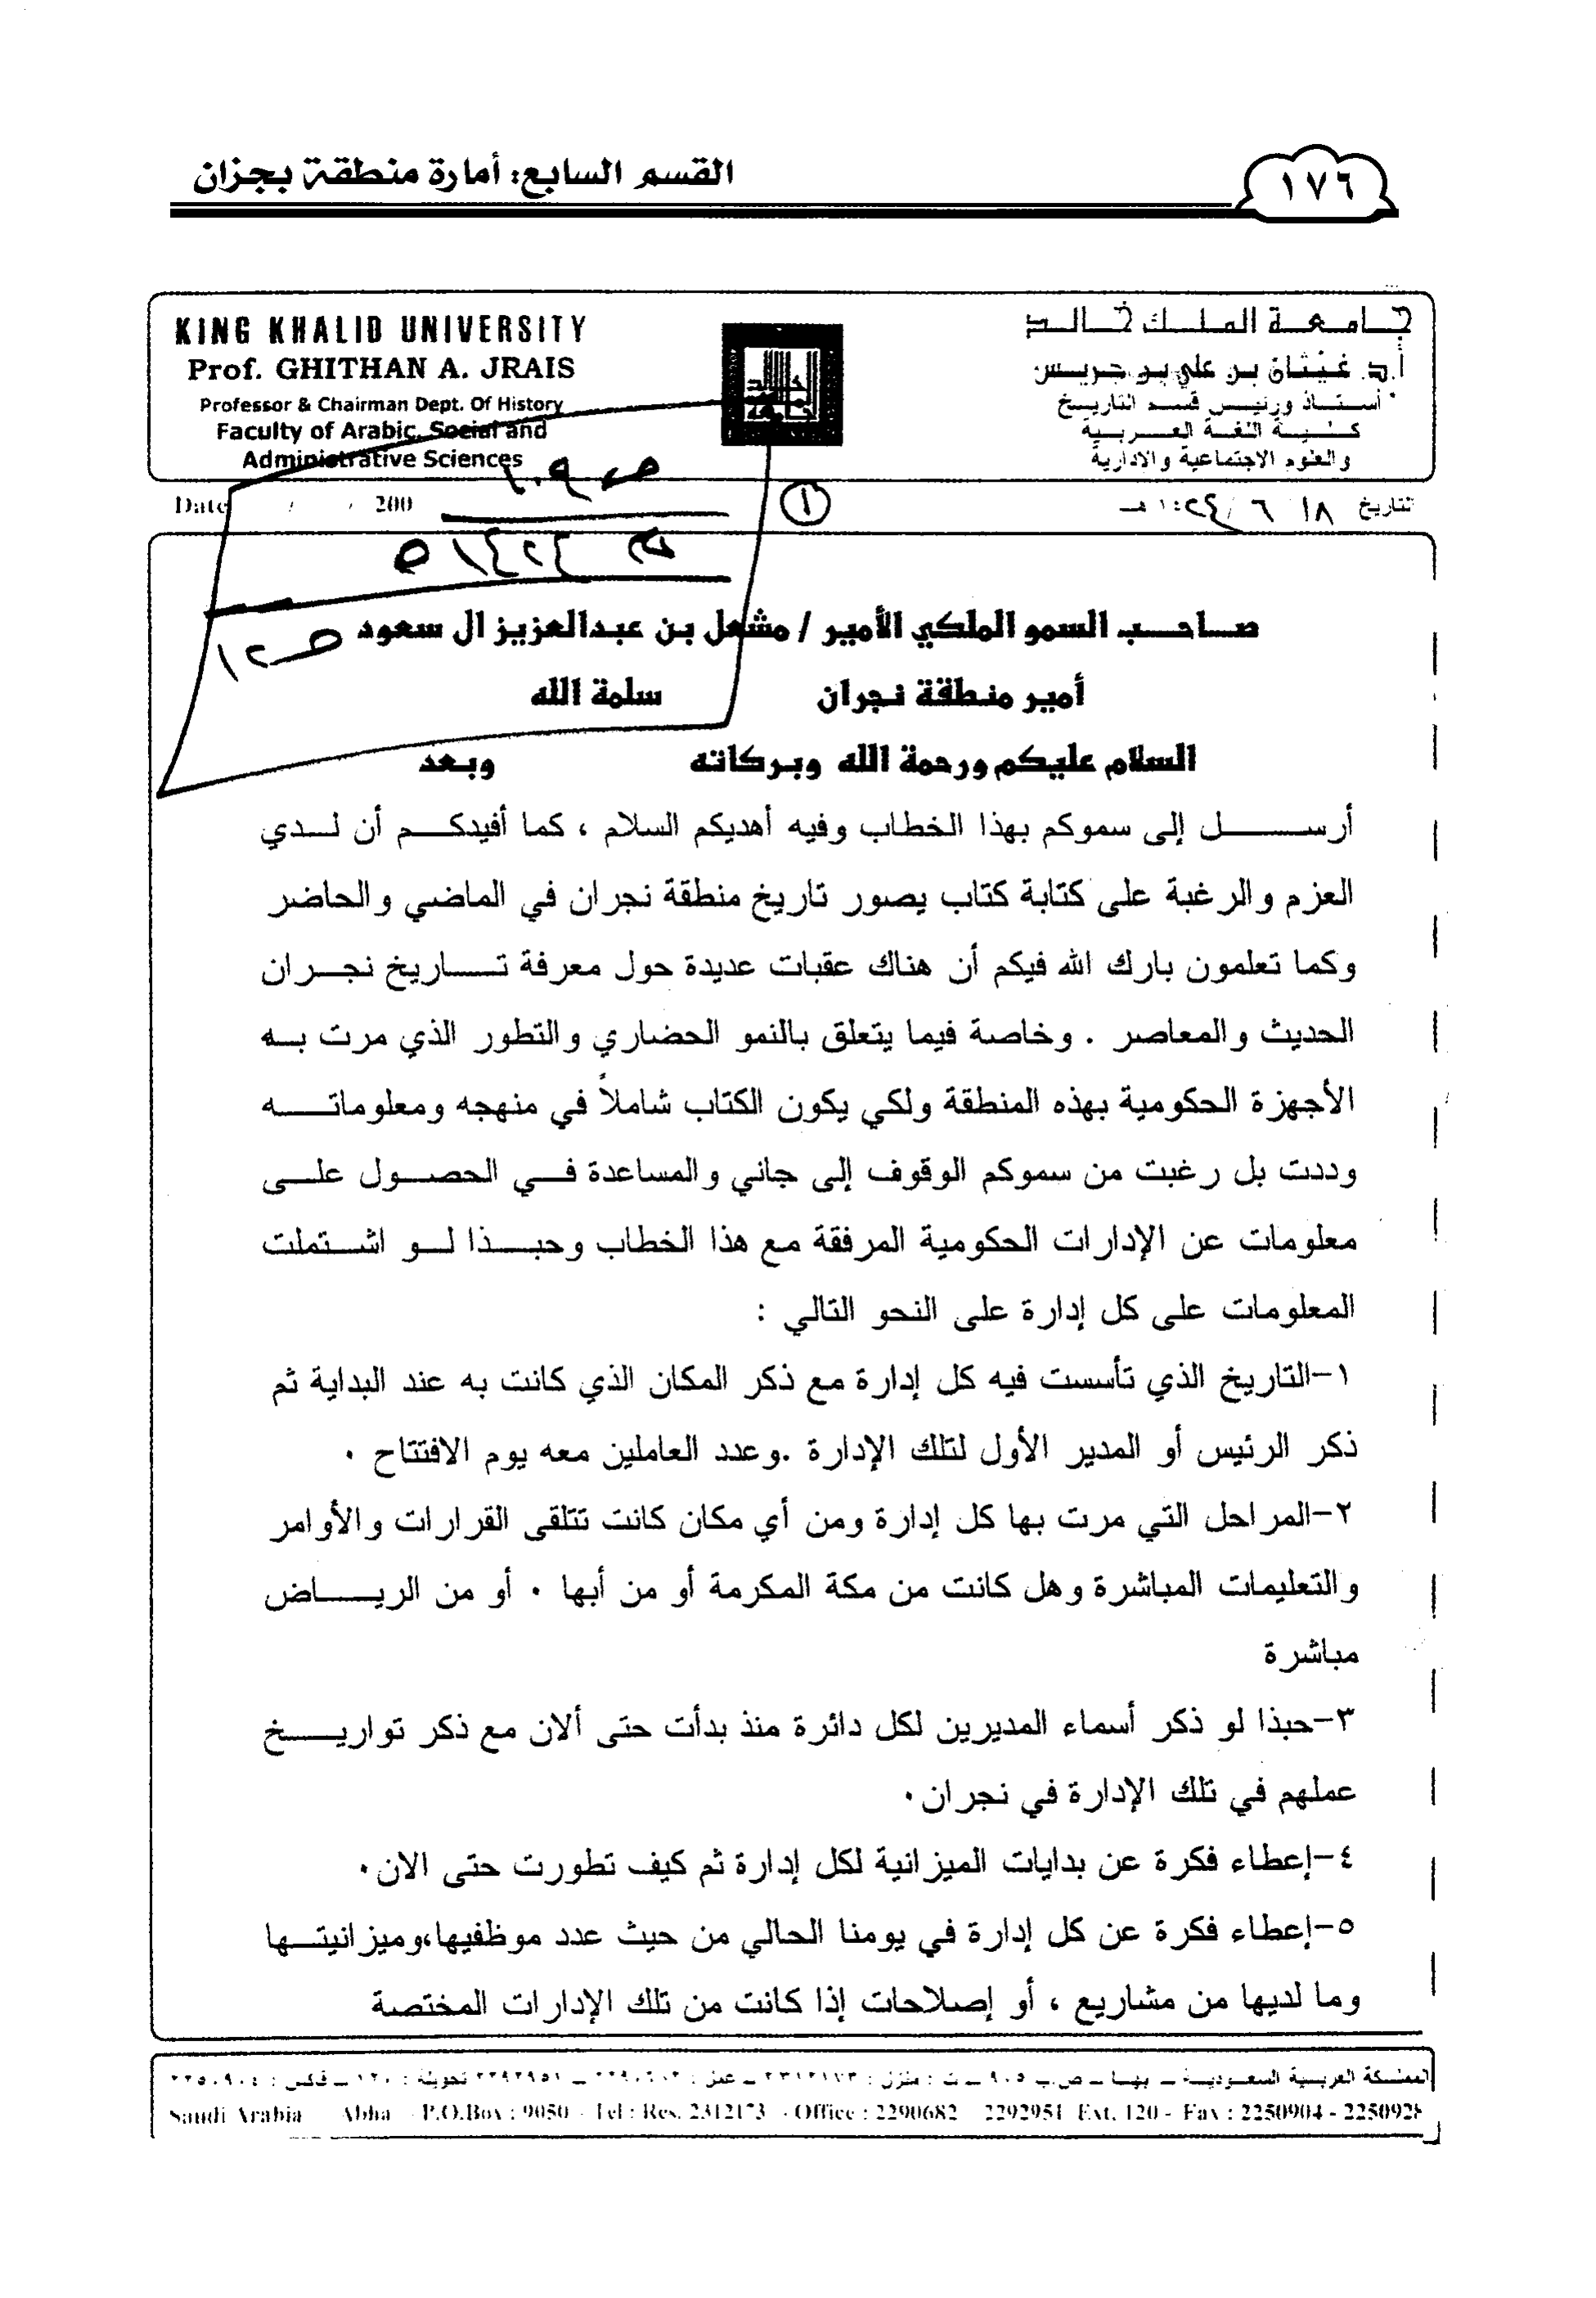 القسم السابع: أمارة منطقة بجزان
١٧٦
KING KHALID UNIVERSITY
Prof. GHITHAN A. JRAIS
Professor & Chairman Dept. Of History
Faculty of Arabic, Social and
Administrative Sciences
جامعة الملك خالد
أ.د. غيثان بن علي بن جريس
أستاذ ورئيس قسم التاريخ
كلية اللغة العربية
والعلوم الاجتماعية والإدارية
Date / / 200
١
التاريخ ١٨/ ٦ /١٤٢٤هـ
صاحب السمو الملكي الأمير / مشعل بن عبدالعزيز ال سعود
أمير منطقة نجران سلمة الله
السلام عليكم ورحمة الله وبركاته وبعد
أرسل إلى سموكم بهذا الخطاب وفيه أهديكم السلام ، كما أفيدكم أن لدي
العزم والرغبة على كتابة كتاب يصور تاريخ منطقة نجران في الماضي والحاضر
وكما تعلمون بارك الله فيكم أن هناك عقبات عديدة حول معرفة تاريخ نجران
الحديث والمعاصر . وخاصة فيما يتعلق بالنمو الحضاري والتطور الذي مرت به
الأجهزة الحكومية بهذه المنطقة ولكي يكون الكتاب شاملاً في منهجه ومعلوماته
وددت بل رغبت من سموكم الوقوف إلى جاني والمساعدة في الحصول على
معلومات عن الإدارات الحكومية المرفقة مع هذا الخطاب وحبذا لو اشتملت
المعلومات على كل إدارة على النحو التالي :
١-التاريخ الذي تأسست فيه كل إدارة مع ذكر المكان الذي كانت به عند البداية ثم
ذكر الرئيس أو المدير الأول لتلك الإدارة .وعدد العاملين معه يوم الافتتاح ٠
٢-المراحل التي مرت بها كل إدارة ومن أي مكان كانت تتلقى القرارات والأوامر
والتعليمات المباشرة وهل كانت من مكة المكرمة أو من أبها ٠ أو من الرياض
مباشرة
٣-حبذا لو ذكر أسماء المديرين لكل دائرة منذ بدأت حتى ألان مع ذكر تواريخ
عملهم في تلك الإدارة في نجران٠
٤-إعطاء فكرة عن بدايات الميزانية لكل إدارة ثم كيف تطورت حتى الان٠
٥-إعطاء فكرة عن كل إدارة في يومنا الحالي من حيث عدد موظفيها،وميزانيتها
وما لديها من مشاريع ، أو إصلاحات إذا كانت من تلك الإدارات المختصة
المملكة العربية السعودية
Saudi Arabia Abha - P.O.Box : 9050 - Tel : Res. 2312173 - Office : 2290682 2292951 Ext. 120 - Fax : 2250904 - 2250928